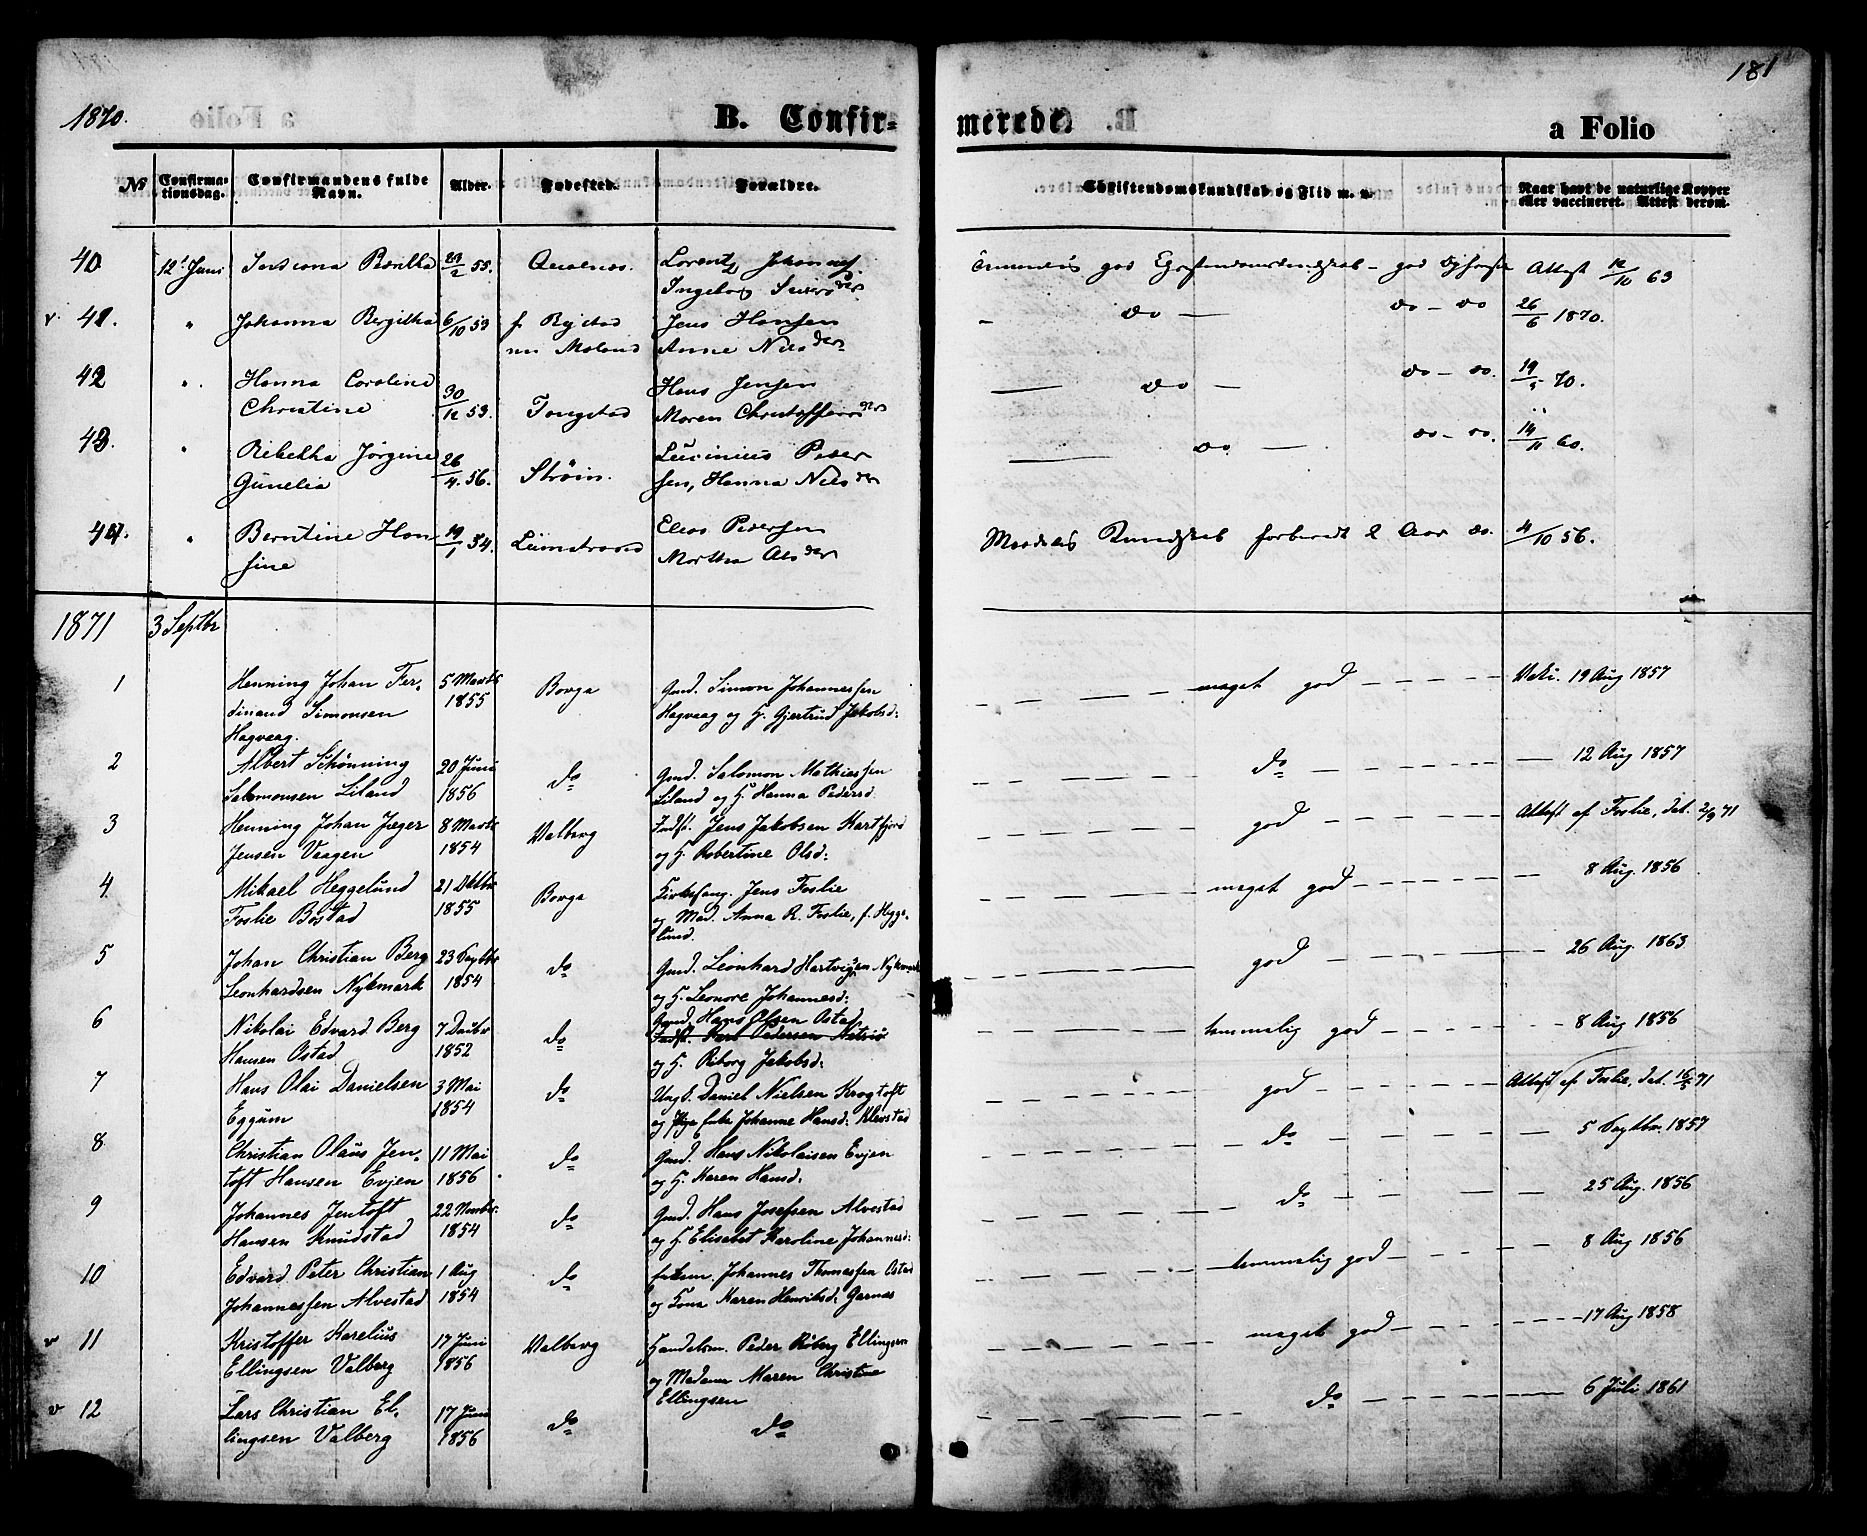 181
1870.
B. Confir-
merede.
a Folio
No
Confirma-
tionsdag.
Confirmandens fulde
Navn.
Alder.
Fødested.
Forældre.
Christendomskundskab og Flid m. v.
Naar havt de naturlige Kopper
eller vaccineret. Attest derom.
40 12' Juni 55. Lorentz
god god Attest 12/10 63
v 41. " Johanna Bergitha 6/10 53 Jens Hansen
do do - do 26/6 1870.
Anne Nilsder
42 " Hanna Caroline Hans Jensen
do do - do. 70.
Christine 30/12 53. Tangstad Maren
43. " Rebekka Jørgine Peder
do do - do. 14/11 60.
Gunelia 26/4. 56. Strøm. sen, Hanna Nilsder
44. " Berntine Han 19/1 54. Pedersen
Kundskab forberedt 2 Aar do. 4/10 56.
sine Martha Olsder
1871 3 Septbr
1 Henning Johan Fer- 5 Marts Borge Gmd. Simon Johannessen
meget god Vakc. 19 Aug 1857
dinand Simonsen 1855 Hagvaag og H. Gjertrud Jakobsd:
Hagvaag.
2 Albert Schønning 20 Juni do Gmd. Salomon Mathiassen
do 12 Aug 1857
Salomonsen Liland 1856 Liland og H. Hanna Pedersd.
3 Henning Johan Jæger 8 Marts Valberg Indst. Jens Jakobsen Kartfjord
god Attest af Foslie, dat. 2/9 71
Jensen Vaagen 1854 og H. Robertine Olsd:
4. Mikael Heggelund 21 Oktbr Borge Kirkesang. Jens Foslie
meget god 8 Aug. 1856
Foslie Bøstad 1855 og Mad. Anna R. Foslie, f. Hegge-
lund.
5 Johan Christian Berg 23 Septbr do Gmd. Leonhard Hartvigsen Nykmark
god 26 Aug. 1863
Leonhardsen Nykmark 1854 og H. Leonore Johannesd:
6 Nikolai Edvard Berg 7 Decbr do Gmd. Hans Olsen Ostad
temmelig god 8 Aug 1856
Hansen Ostad 1852 og H. Riborg Jakobsd:
7 Hans Olai Danielsen 3 Mai do Ung. Daniel Nielsen Krogtoft
god Attest af Foslie, dat. 16/5 71
Eggum 1854 og Pige Johanne Hansd: Klevstad
8 Christian Olaus Jen- 11 Mai do Gmd. Hans Nikolaisen Evjen
do 5 Septbr. 1857
toft Hansen Evjen 1856 og H. Karen Hansd.
9 Johannes Jentoft 22 Novbr. do Gmd. Hans Josefsen Alvestad
do 25 Aug. 1856
Hansen Knudstad 1854 og H Elisabet Karoline Johannesd:
10 Edvard Peter Christian 1 Aug do Johannes Thomassen Ostad
temmelig god 8 Aug 1856
Johannessen Alvestad 1854 og Kona Karen Henriksd: Garnes
v 11 Kristoffer Karelius 17 Juni Valberg Handelsm. Peder Røberg Ellingsen
meget god 17 Aug 1858
Ellingsen Valberg 1856 og Madame Maren Christine
Ellingsen
v 12 Lars Christian El- 17 Juni do do
do 6 Juli 1861
lingsen Valberg 1856